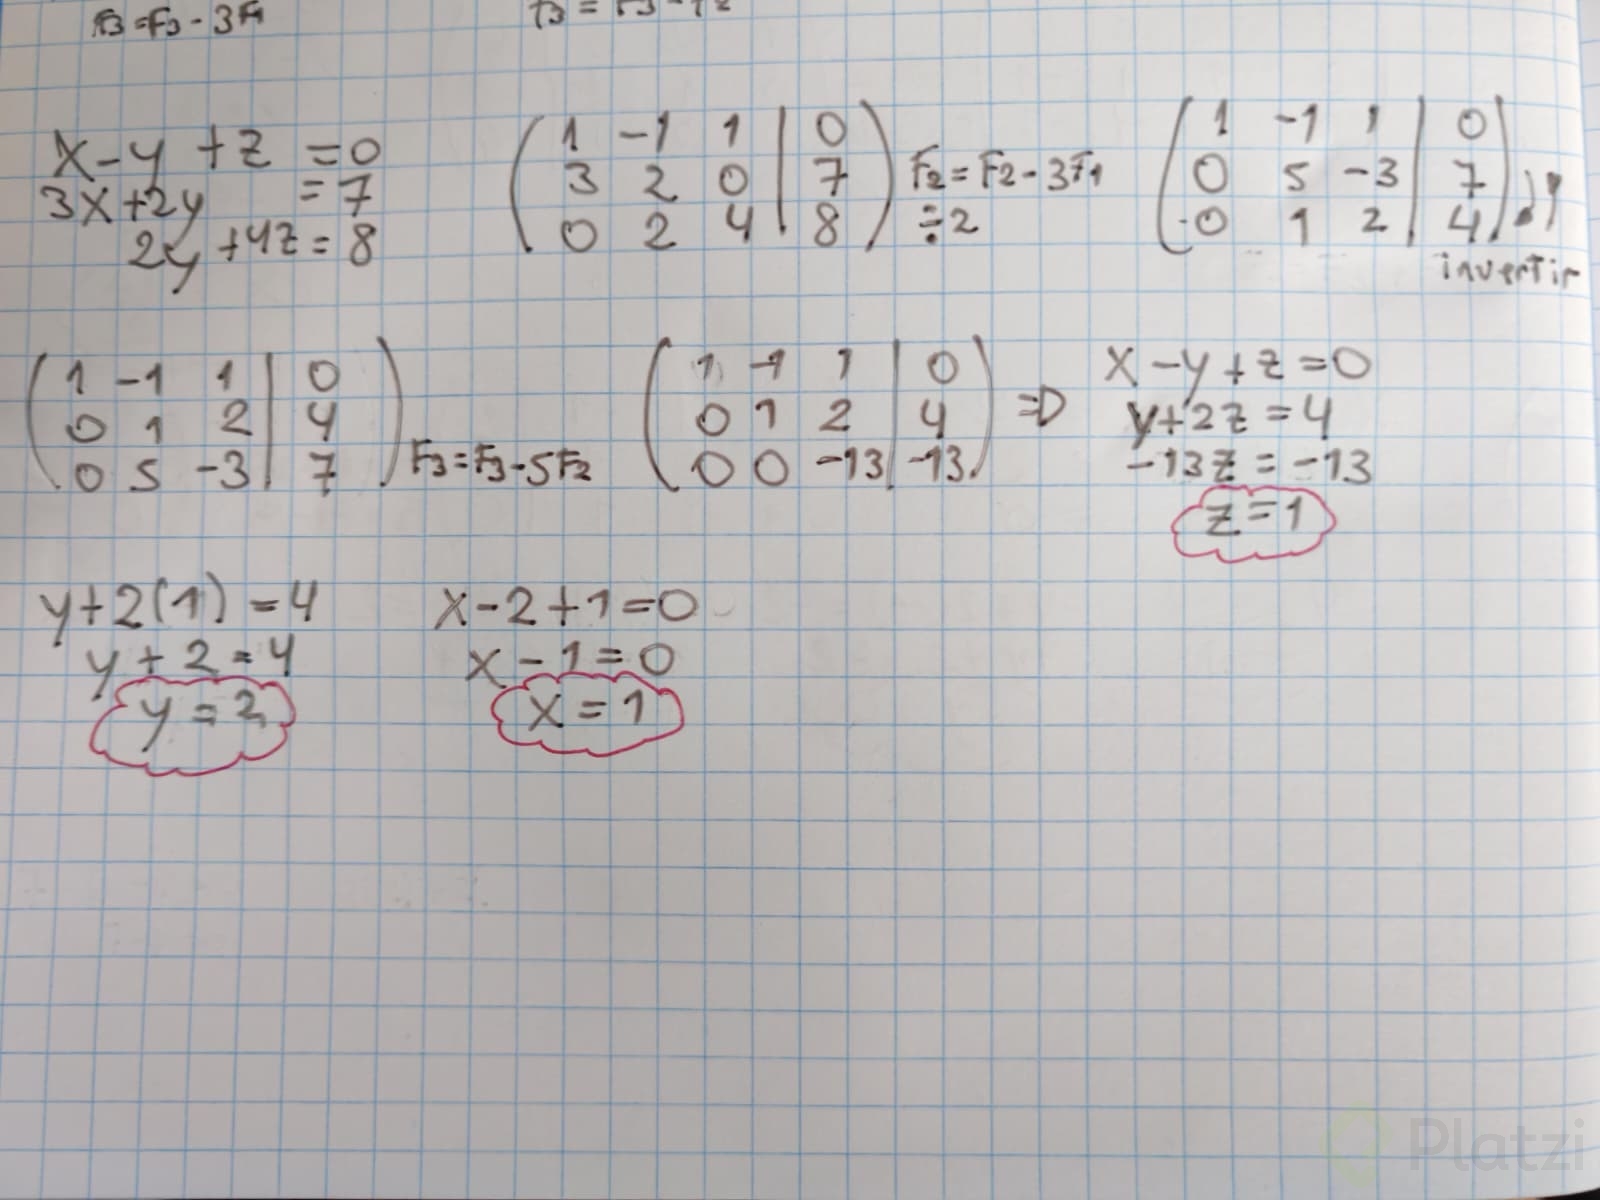 F3=F3-3F1
x-y+z=0
3x+2y =7
2y+4z=8
( 1 -1 1 | 0 )
( 3 2 0 | 7 ) F2=F2-3F1
( 0 2 4 | 8 ) ÷2
( 1 -1 1 | 0 )
( 0 5 -3 | 7 )
( 0 1 2 | 4 )
invertir
( 1 -1 1 | 0 )
( 0 1 2 | 4 )
( 0 5 -3 | 7 ) F3=F3-5F2
( 1 -1 1 | 0 )
( 0 1 2 | 4 ) ⇒
( 0 0 -13 | -13 )
x-y+z=0
y+2z=4
-13z=-13
z=1
y+2(1)=4
y+2=4
y=2
x-2+1=0
x-1=0
x=1
Platzi